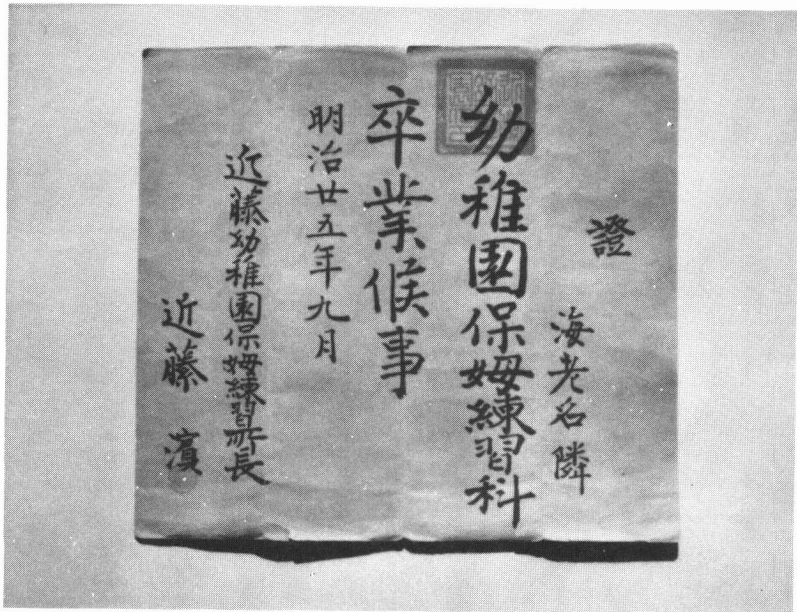 證
海老名隣
幼稚園保姆練習科
卒業候事
明治廿五年九月
近藤幼稚園保姆練習所長
近藤濱